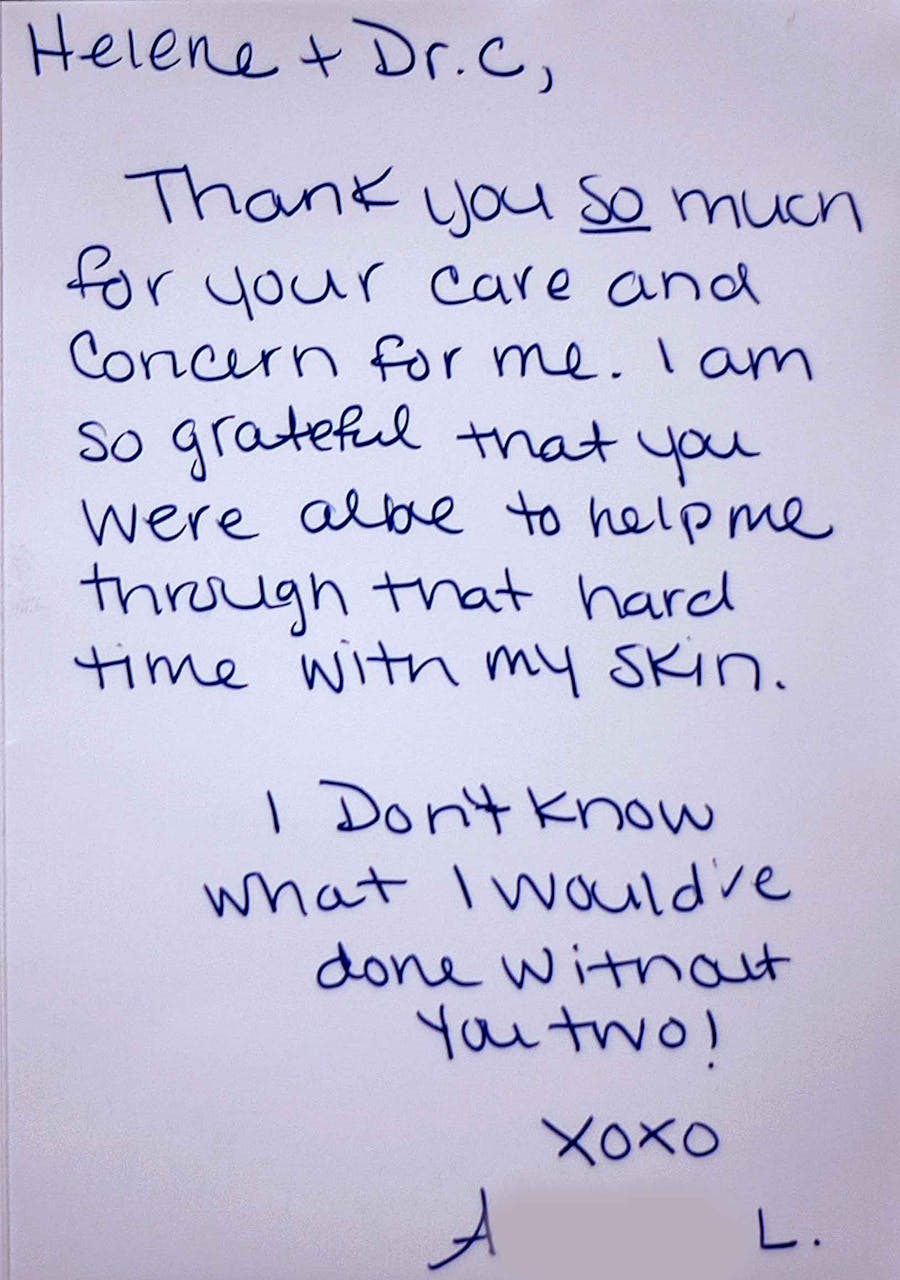 Helene + Dr. C,
Thank you so much
for your care and
Concern for me. I am
so grateful that you
were albe to help me
through that hard
time with my skin.
I Don't know
what I would've
done without
you two!
xoxo
A L.